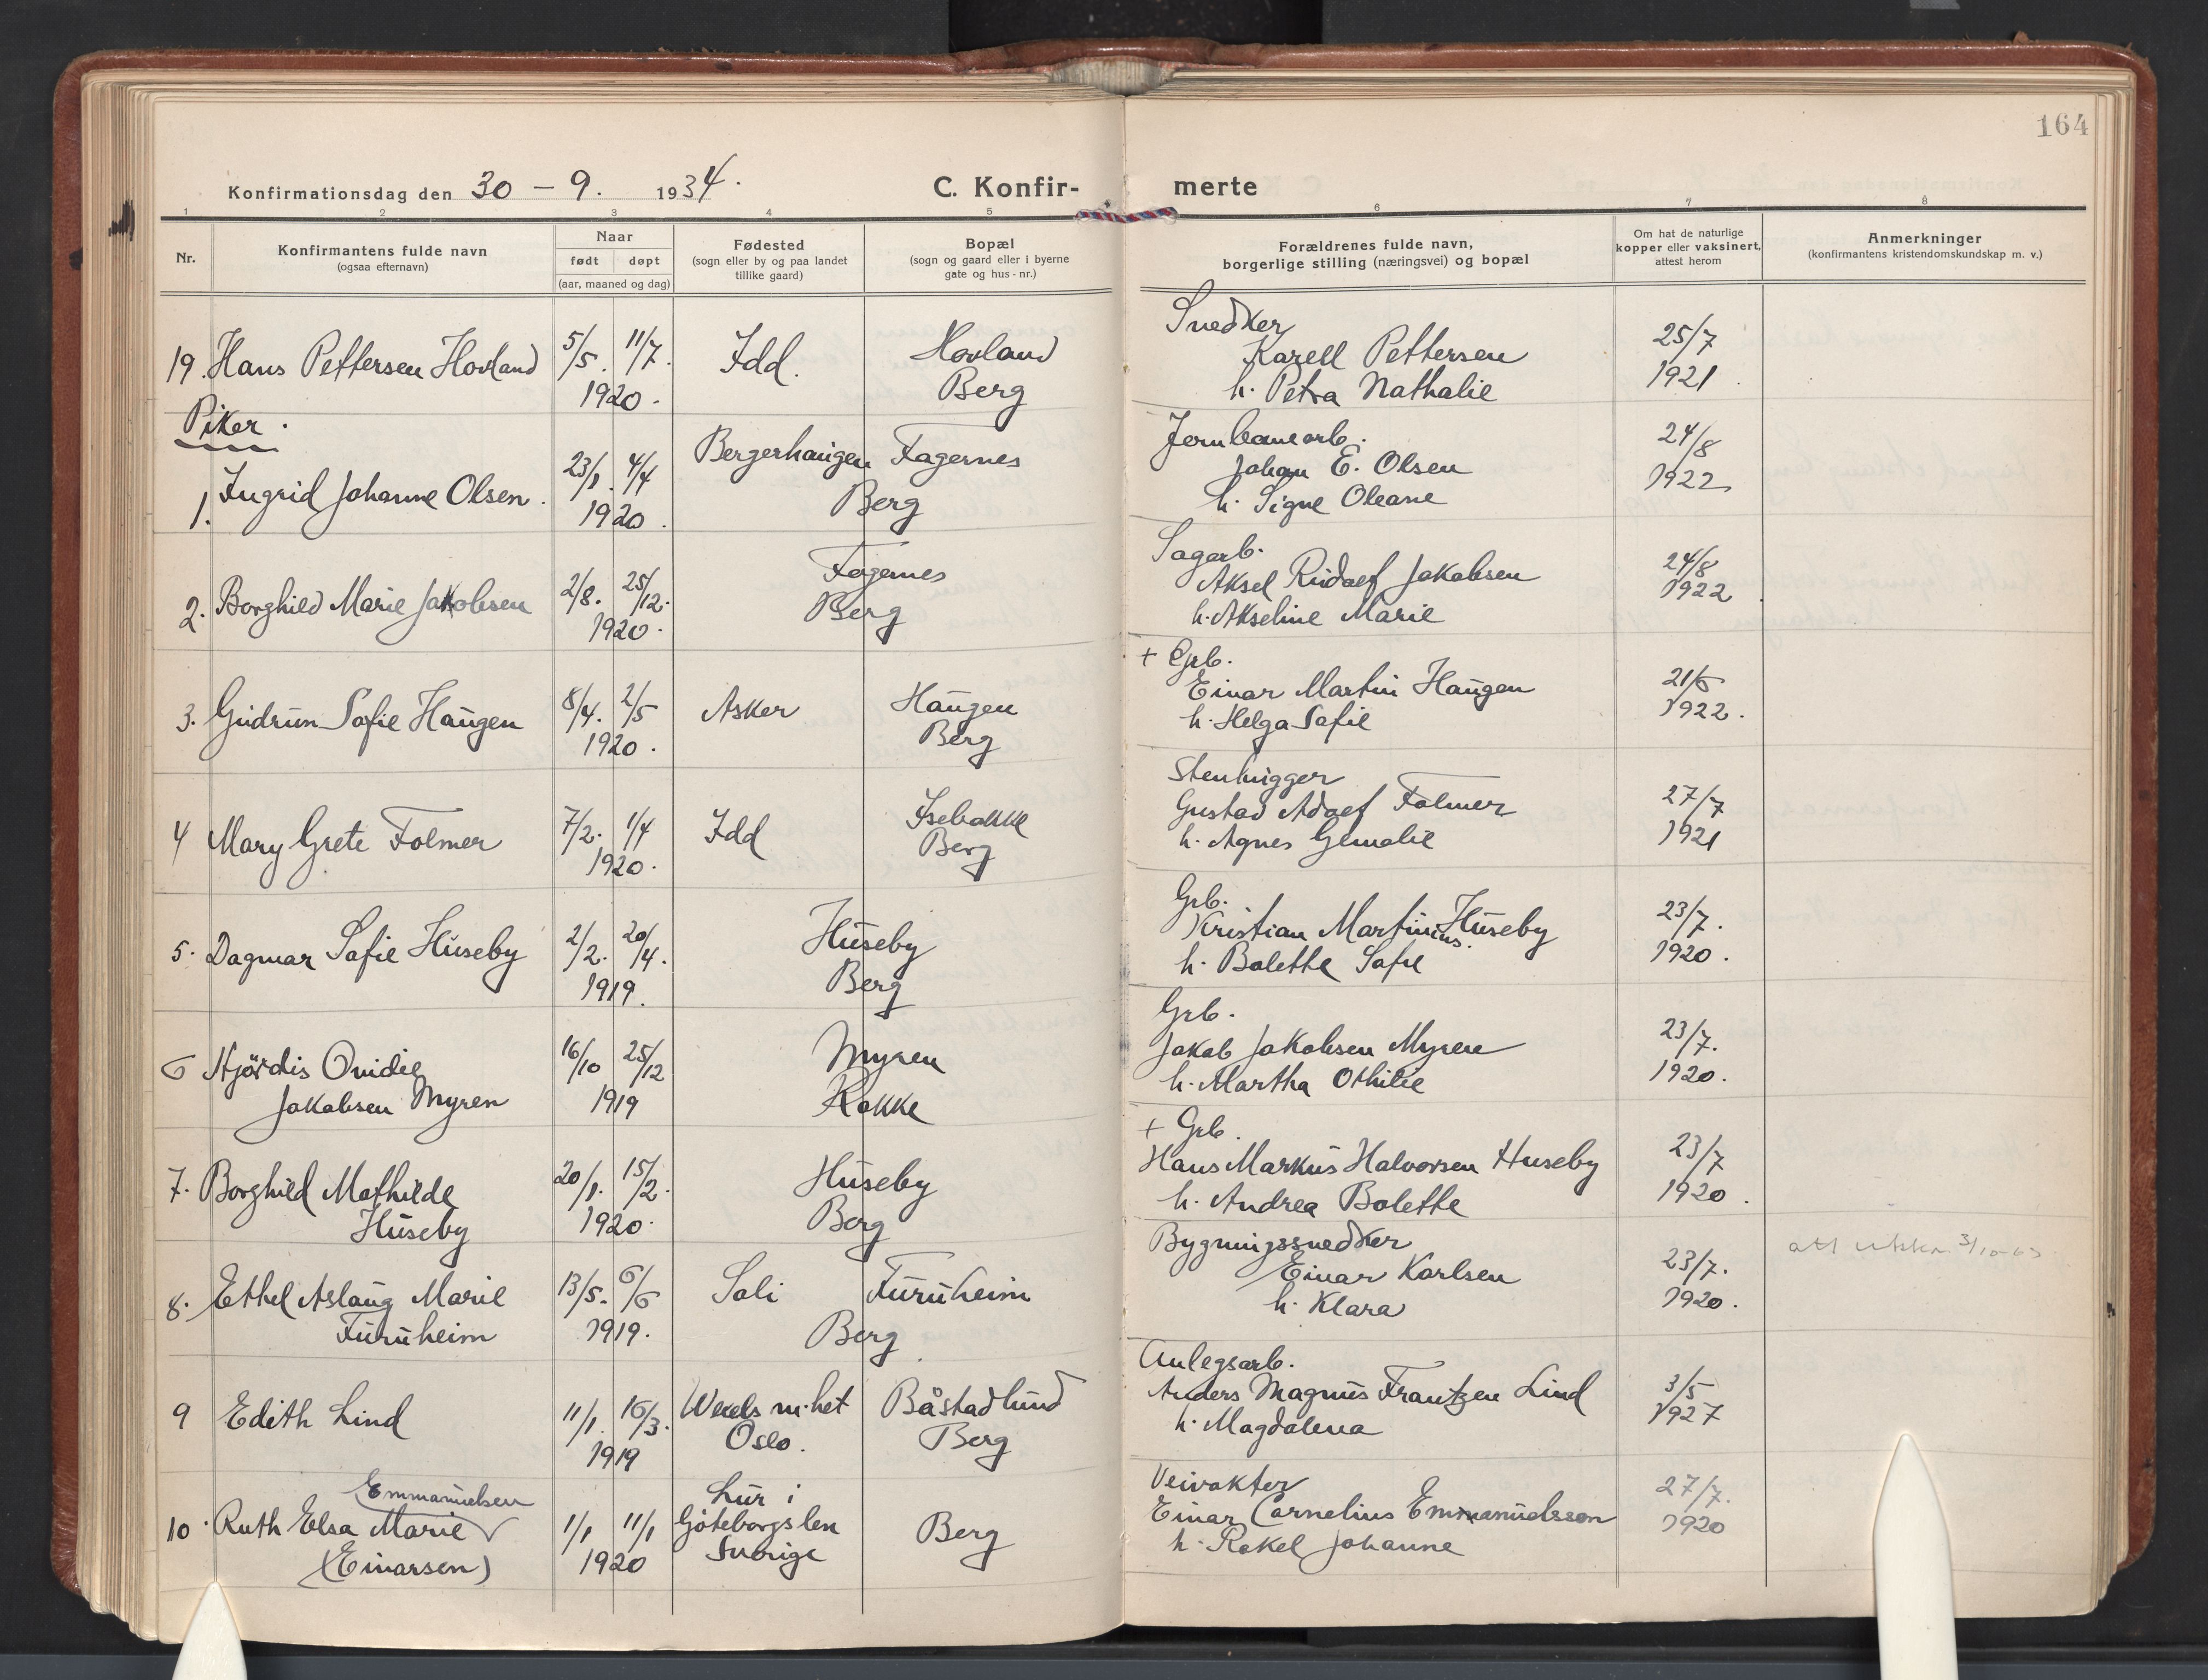 164
Konfirmationsdag den 30 - 9. 1934.
C. Konfirmerte
1 2 3 4 5 6 7 8
Nr.
Konfirmantens fulde navn
(ogsaa efternavn)
Naar
født døpt
(aar, maaned og dag)
Fødested
(sogn eller by og paa landet
tillike gaard)
Bopæl
(sogn og gaard eller i byerne
gate og hus-nr.)
Forældrenes fulde navn,
borgerlige stilling (næringsvei) og bopæl
Om hat de naturlige
kopper eller vaksinert,
attest herom
Anmerkninger
(konfirmantens kristendomskundskap m. v.)
19. Hans Pettersen Hovland
5/5. 11/7.
1920.
Idd.
Hovland
Berg
Snedker
Karell Pettersen
h. Petra Nathalie
25/7
1921.
Piker.
1. Ingrid Johanne Olsen.
23/1. 4/4
1920.
Bergerhaugen
Fagernes
Berg
Jernbanearb.
Johan E. Olsen
h. Signe Oleane
24/8
1922
2. Borghild Marie Jakobsen
2/8. 25/12.
1920.
Fagernes
Berg
Sagarb.
Aksel Rudolf Jakobsen
h. Akseline Marie
24/8
1922.
3. Gudrun Sofie Haugen
8/4. 2/5
1920.
Asker
Haugen
Berg
+ Grb.
Einar Martin Haugen
h. Helga Sofie
21/6
1922.
4 Mary Grete Folmer
7/2. 1/4
1920.
Idd
Isebakke
Berg
Stenhugger
Gustav Adolf Folmer
h. Agnes Gemalie
27/7
1921
5. Dagmar Sofie Huseby
2/2. 20/4.
1919.
Huseby
Berg
Grb.
Kristian Martinius Huseby
h. Bolette Sofie
23/7.
1920.
6 Hjördis Ovidie
Jakobsen Myren
16/10 25/12
1919
Myren
Rokke
Grb.
Jakob Jakobsen Myren
h. Martha Othilie
23/7.
1920.
7. Borghild Mathilde
Huseby
20/1. 15/2.
1920.
Huseby
Berg
+ Grb.
Hans Markus Halvorsen Huseby
h. Andrea Bolette
23/7
1920.
8. Ethel Aslaug Marie
Furuheim
13/5. 6/6
1919.
Soli
Furuheim
Berg
Bygningssnedker
Einar Karlsen
h. Klara
23/7.
1920.
att utskr. 3/10-63
9 Edith Lind
11/1. 16/3.
1919
m.het
Oslo.
Båstadlund
Berg
Anlegsarb.
Anders Magnus Frantzen Lind
h. Magdalena
3/5
1927
Emmanuelsen
10. Ruth Elsa Marie
(Einarsen)
1/1 11/1
1920
Lur i
Göteborgs len
Sverige
Berg
Veivokter
Einar Cornelius Emmanuelsson
h. Rakel Johanne
27/7.
1920